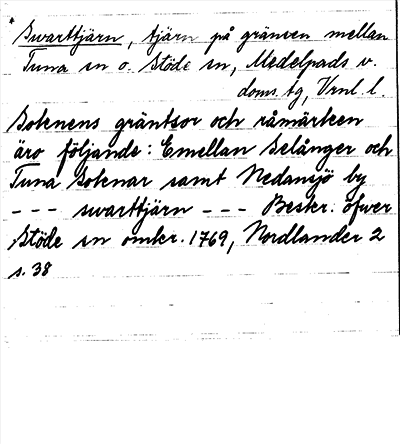 Swarttjärn, tjärn på gränsen mellan
Tuna sn o. Stöde sn, Medelpads v.
doms. tg, Vrnl. l.
Soknens gräntsor och råmärken
äro följande: Emellan Selånger och
Tuna Soknar samt Nedansjö by
--- swarttjärn --- Beskr. öfwer
Stöde sn omkr. 1769, Nordlander 2
s. 38